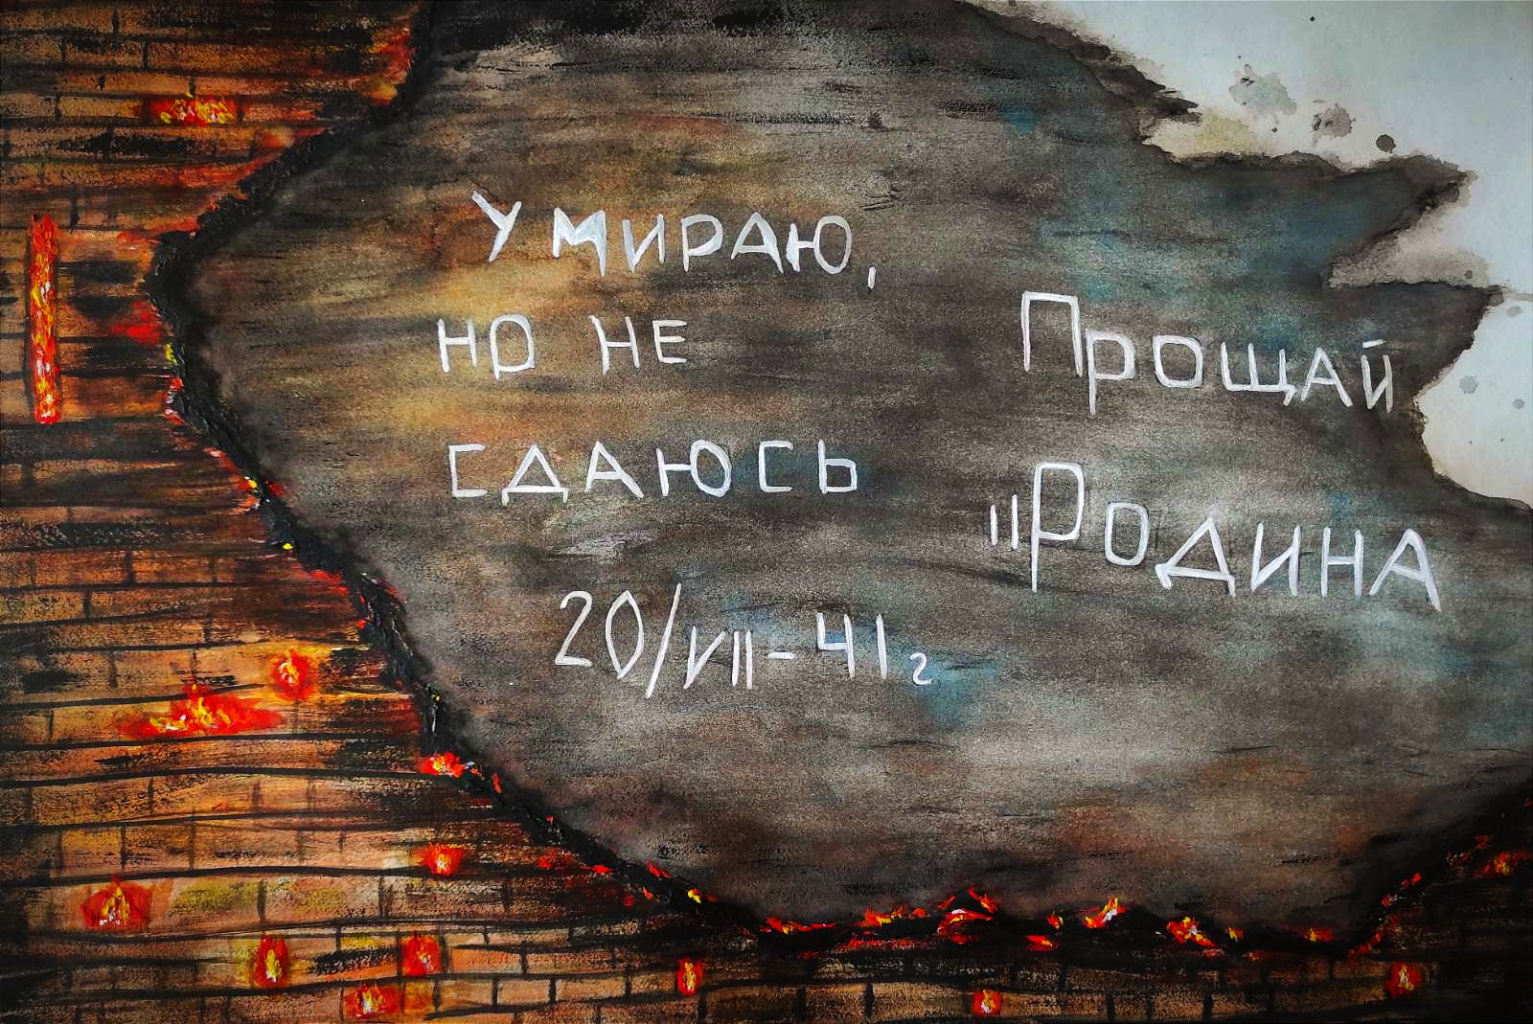 Умираю,
но не
сдаюсь
20/VII-41г
Прощай
"Родина